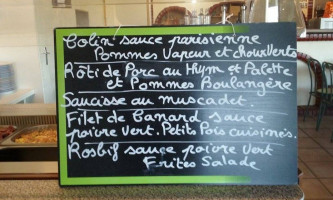 Colin sauce parisienne
Pommes Vapeur et choux Verts
Rôti de Porc au thym et Palette
et Pommes Boulangère
Saucisse au muscadet.
Filet de Canard sauce
poivre Vert. Petits Pois cuisinés.
Rosbif sauce poivre Vert
Frites Salade